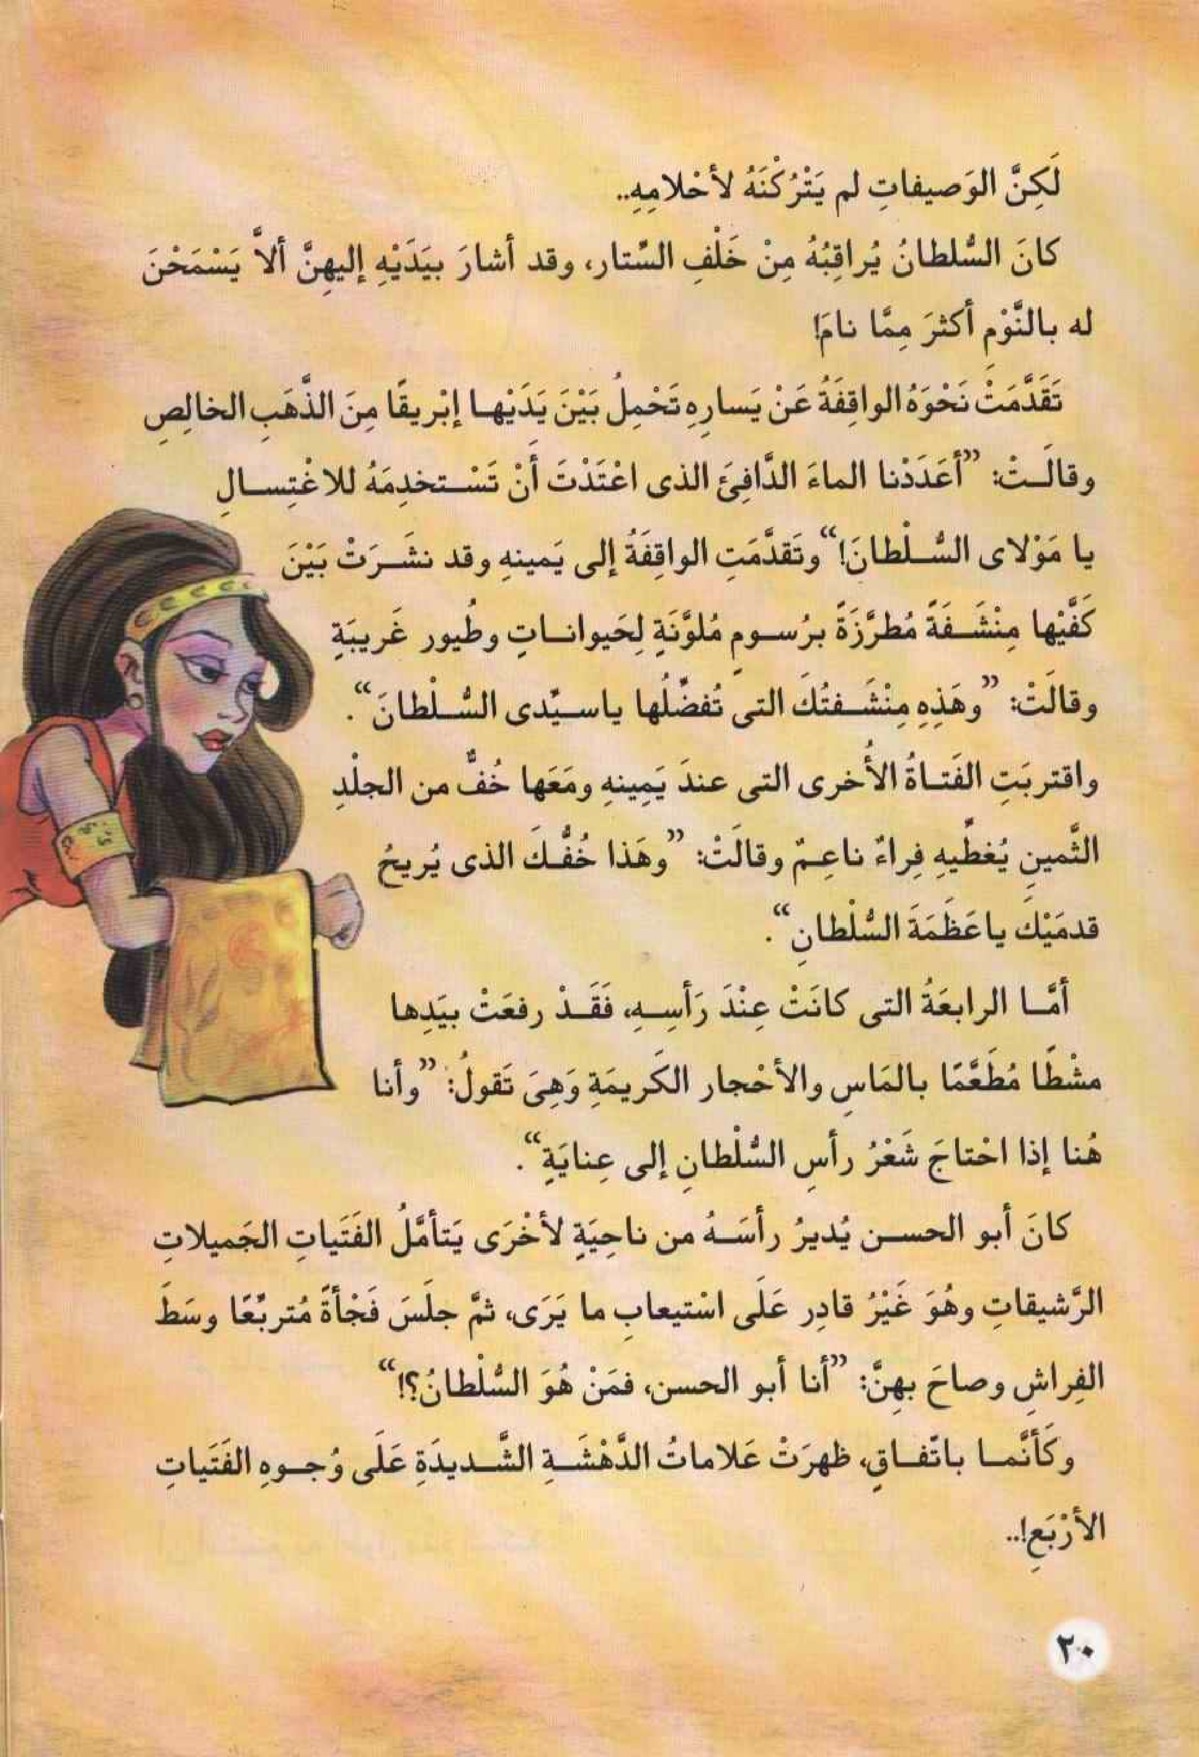 لَكِنَّ الوَصيفاتِ لم يَتْرُكْنَهُ لأحْلامِهِ..
كانَ السُّلطانُ يُراقِبُهُ مِنْ خَلْفِ السِّتار، وقد أشارَ بيَدَيْهِ إليهِنَّ ألاَّ يَسْمَحْنَ
له بالنَّوْمِ أكثرَ مِمَّا نامَ!
تَقَدَّمَتْ نَحْوَهُ الواقِفَةُ عَنْ يَسارِهِ تَحْمِلُ بَيْنَ يَدَيْها إبْريقًا مِنَ الذَّهَبِ الخالِصِ
وقالَتْ: ”أعَدَدْنا الماءَ الدَّافِئَ الذى اعْتَدْتَ أنْ تَسْتخدِمَهُ للاغْتِسالِ
يا مَوْلاى السُّلْطانَ!“ وتَقدَّمَتِ الواقِفَةُ إلى يَمينهِ وقد نشَرَتْ بَيْنَ
كَفَّيْها مِنْشَفَةً مُطرَّزَةً برُسومٍ مُلوَّنَةٍ لِحَيواناتٍ وطُيور غَريبَةٍ
وقالَتْ: ”وهَذِهِ مِنْشَفتُكَ التى تُفضِّلُها ياسيِّدى السُّلْطانَ“.
واقتربَتِ الفَتاةُ الأُخرى التى عندَ يَمِينهِ ومَعَها خُفٌّ من الجلْدِ
الثَّمينِ يُغطِّيهِ فِراءٌ ناعِمٌ وقالَتْ: ”وهَذا خُفُّكَ الذى يُريحُ
قدمَيْكَ ياعَظَمَةَ السُّلْطانِ“.
أمَّا الرابعَةُ التى كانَتْ عِنْدَ رَأسِهِ، فَقَدْ رفعَتْ بيَدِها
مشْطًا مُطَعَّمًا بالمَاسِ والأحْجار الكَريمَةِ وَهِىَ تَقولُ: ”وأنا
هُنا إذا احْتاجَ شَعْرُ رأسِ السُّلْطانِ إلى عِنايَةٍ“.
كانَ أبو الحسن يُديرُ رأسَهُ من ناحِيَةٍ لأخْرَى يَتأمَّلُ الفَتَياتِ الجَميلاتِ
الرَّشيقاتِ وهُوَ غَيْرُ قادِر عَلَى اسْتيعابِ ما يَرَى، ثمَّ جلَسَ فَجْأةً مُتربِّعًا وسَطَ
الفِراشِ وصاحَ بهِنَّ: ”أنا أبو الحسن، فمَنْ هُوَ السُّلْطانُ؟!“
وكَأنَّما باتّفاقٍ، ظهرَتْ عَلاماتُ الدَّهْشَةِ الشَّديدَةِ عَلَى وُجوهِ الفَتَياتِ
الأرْبَعِ!..
٢٠